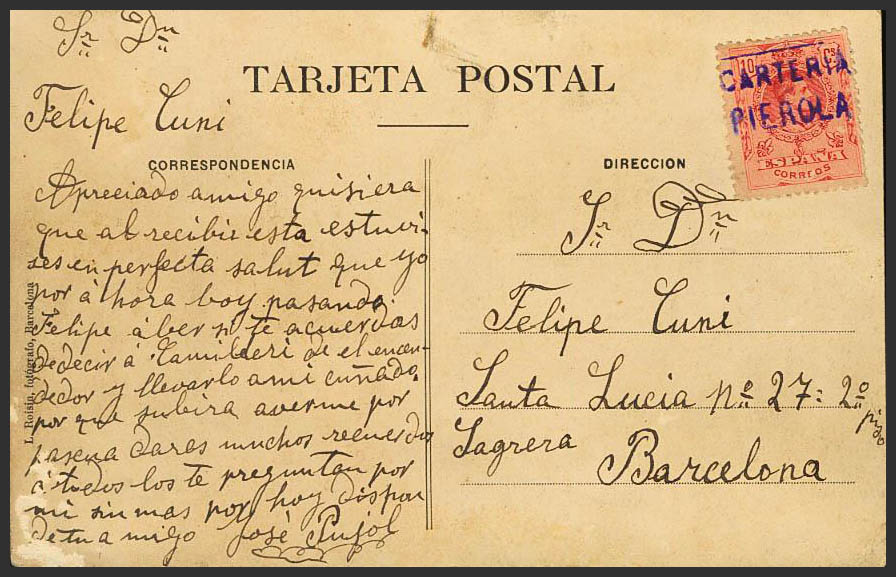 Sr Dn
TARJETA POSTAL
Felipe Cuni
CORRESPONDENCIA
Apreciado amigo quisiera
que al recibir esta estuvi-
ses en perfecta salut que yo
por á hora boy pasando
Felipe á ber si te acuerdas
dedecir á de el encen-
dedor y llevarlo a mi cuñado
por que subira averme por
pascua daras muchos recuerdos
á todos los te preguntan por
mi sin mas por hoy dispon
detu amigo José Pujol
L. Roisin, fotógrafo, Barcelona
10 Cs
CARTERIA
PIEROLA
ESPAÑA
CORREOS
DIRECCION
Sr Dn
Felipe Cuni
Santa Lucia nº 27: 2º piso
Sagrera
Barcelona